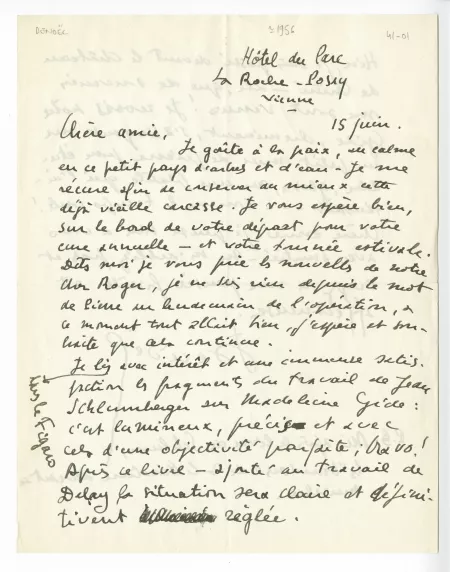 DONJOËL
>1956
41-01
Hôtel du Parc
La Roche-Posay
Vienne
15 juin.
Chère amie,
Je goûte à la paix, au calme
en ce petit pays d'arbres et d'eau - Je me
récure afin de conserver au mieux cette
déjà vieille carcasse. Je vous espère bien,
sur le bord de votre départ pour votre
cure annuelle - et votre tournée estivale.
Dites moi je vous prie les nouvelles de notre
cher Roger, je ne sais rien depuis le mot
de Pierre au lendemain de l'opération, à
ce moment tout allait bien, j'espère et sou-
haite que cela continue.
Je lis avec intérêt et une immense satis-
faction les fragments du travail de Jean
Schlumberger sur Madeleine Gide :
c'est lumineux, précis et avec
cela d'une objectivité parfaite ; bravo !
Après ce livre - ajouté au travail de
Delay la situation sera claire et défini-
tivement réglée.
dans le Figaro